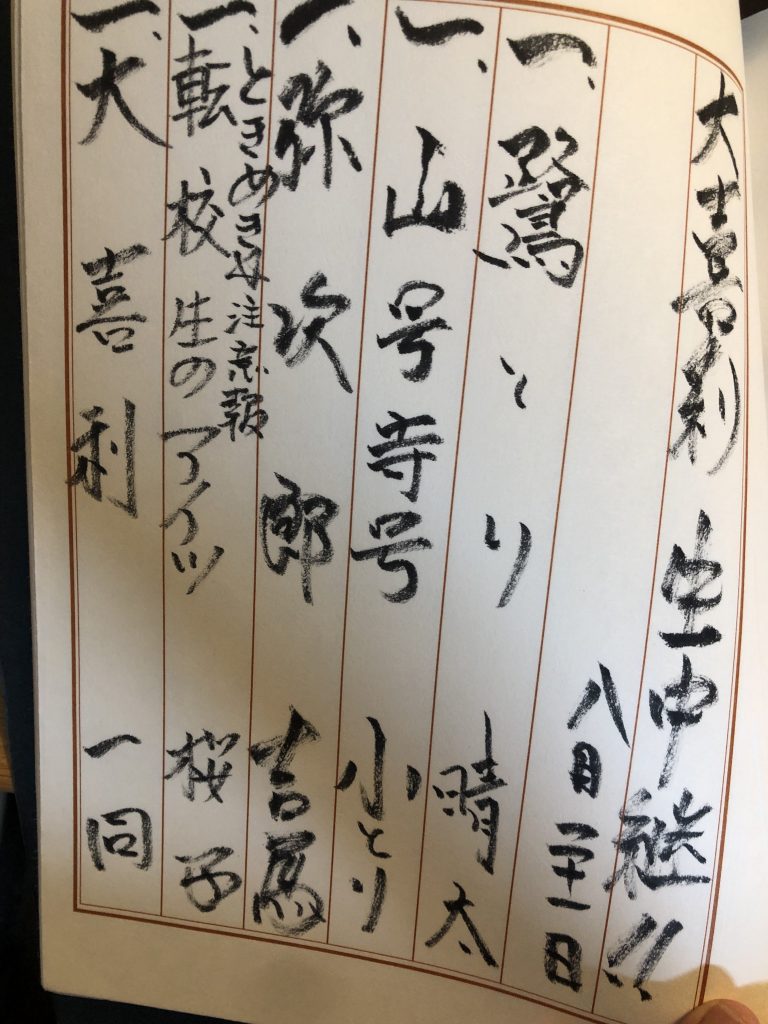 大喜利 生中継!!
八月二十一日
一、鷺とり 晴太
一、山号寺号 小とり
一、弥次郎 吉馬
ときめき☆注意報
一、転校生のアイツ 桜子
一、大喜利 一同